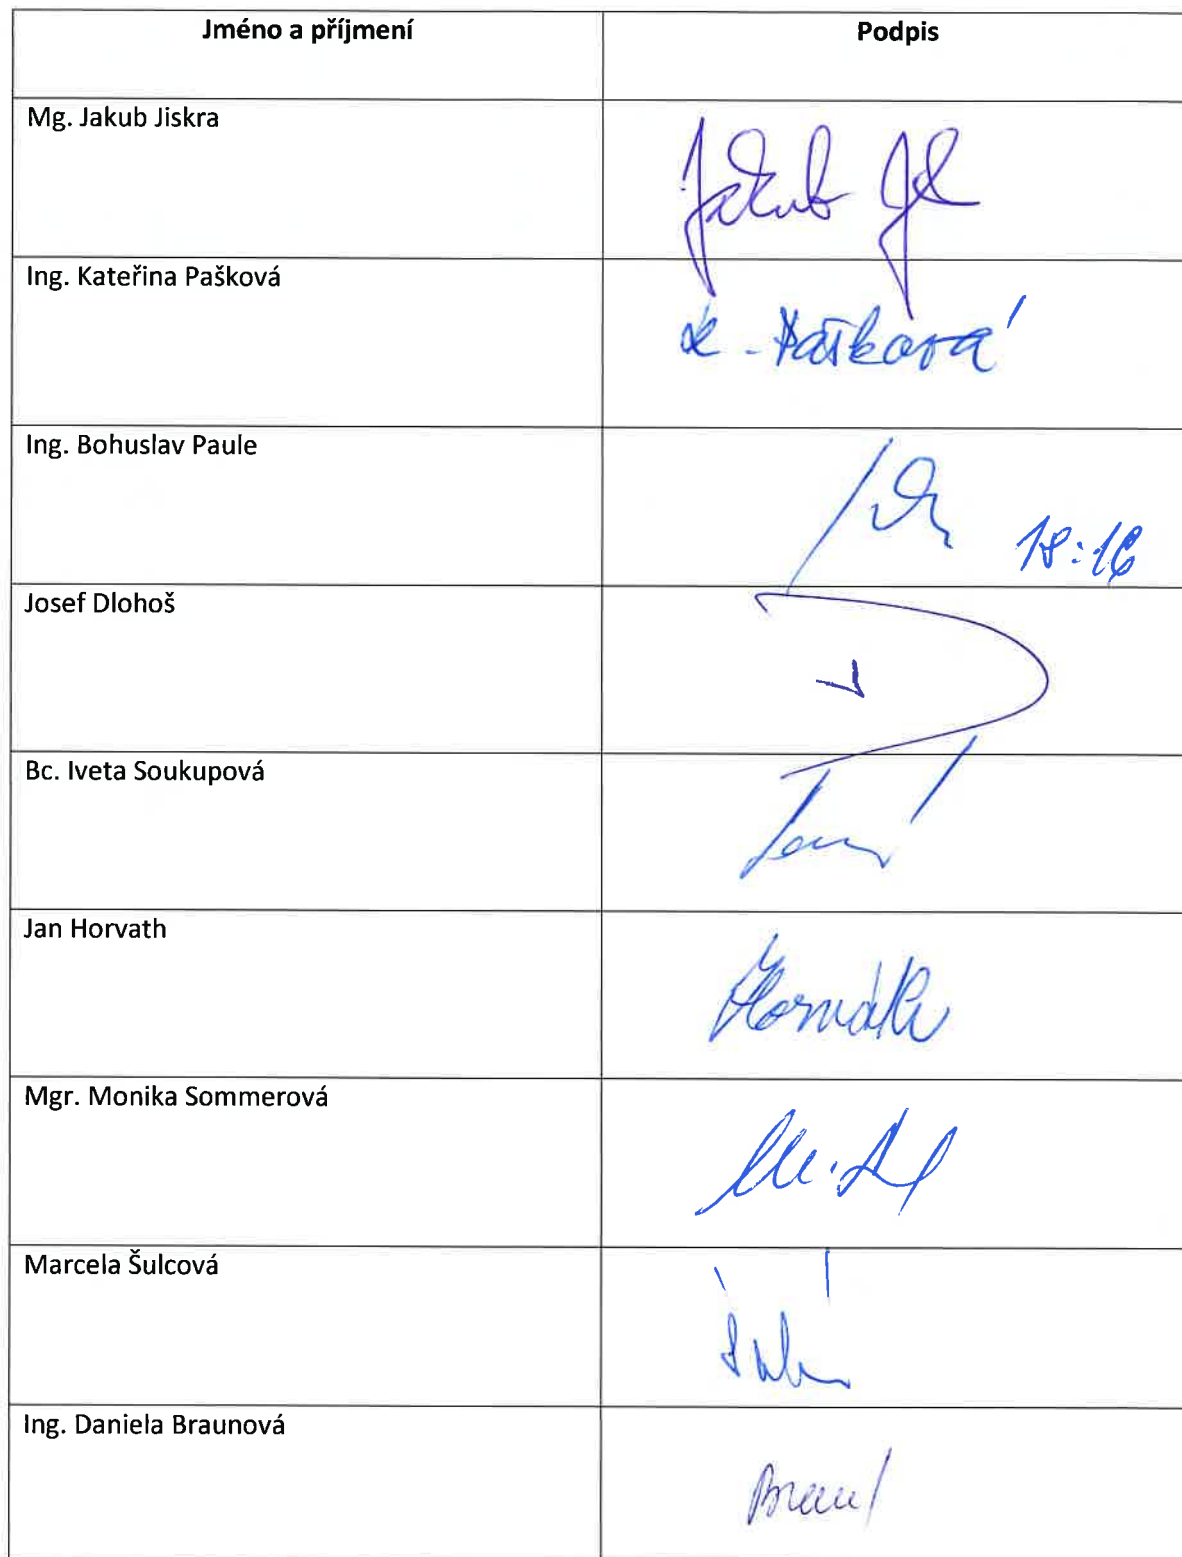 Jméno a příjmení Podpis
Mg. Jakub Jiskra
Jakub
Ing. Kateřina Pašková
K. Pašková
Ing. Bohuslav Paule
18:16
Josef Dlohoš
Bc. Iveta Soukupová
Jan Horvath
Horváth
Mgr. Monika Sommerová
Marcela Šulcová
Ing. Daniela Braunová